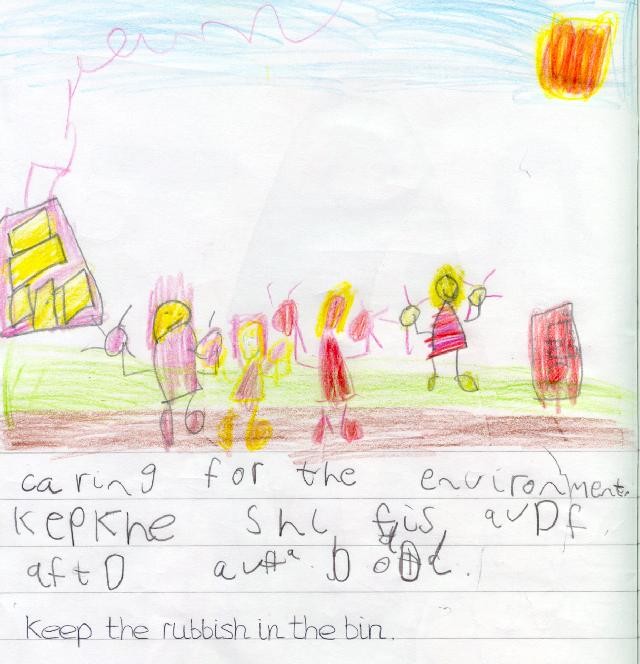 caring for the environment.
KepKhe shl avDf
aftD
Keep the rubbish in the bin.